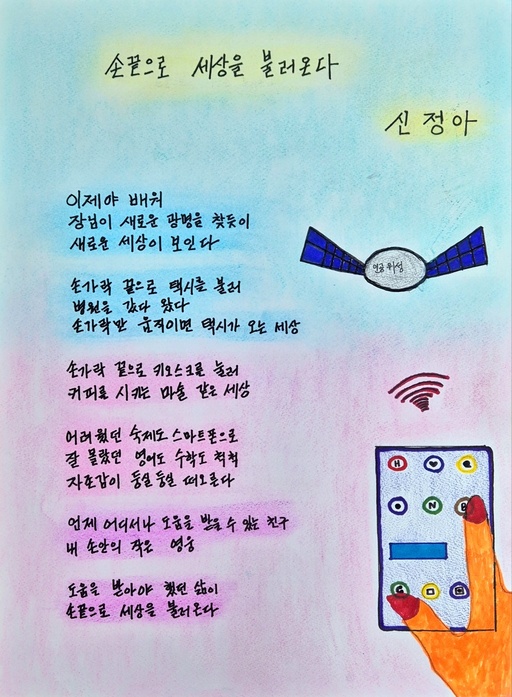 손끝으로 세상을 불러온다
신정아
이제야 배워
장님이 새로운 광명을 찾듯이
새로운 세상이 보인다
손가락 끝으로 택시를 불러
병원을 갔다 왔다
손가락만 움직이면 택시가 오는 세상
손가락 끝으로 키오스크를 눌러
커피를 시키는 마술 같은 세상
어려웠던 숙제도 스마트폰으로
잘 몰랐던 영어도 수학도 척척
자존감이 둥실둥실 떠오른다
언제 어디서나 도움을 받을 수 있는 친구
내 손안의 작은 영웅
도움을 받아야 했던 삶이
손끝으로 세상을 불러온다
인공위성
H
N
B